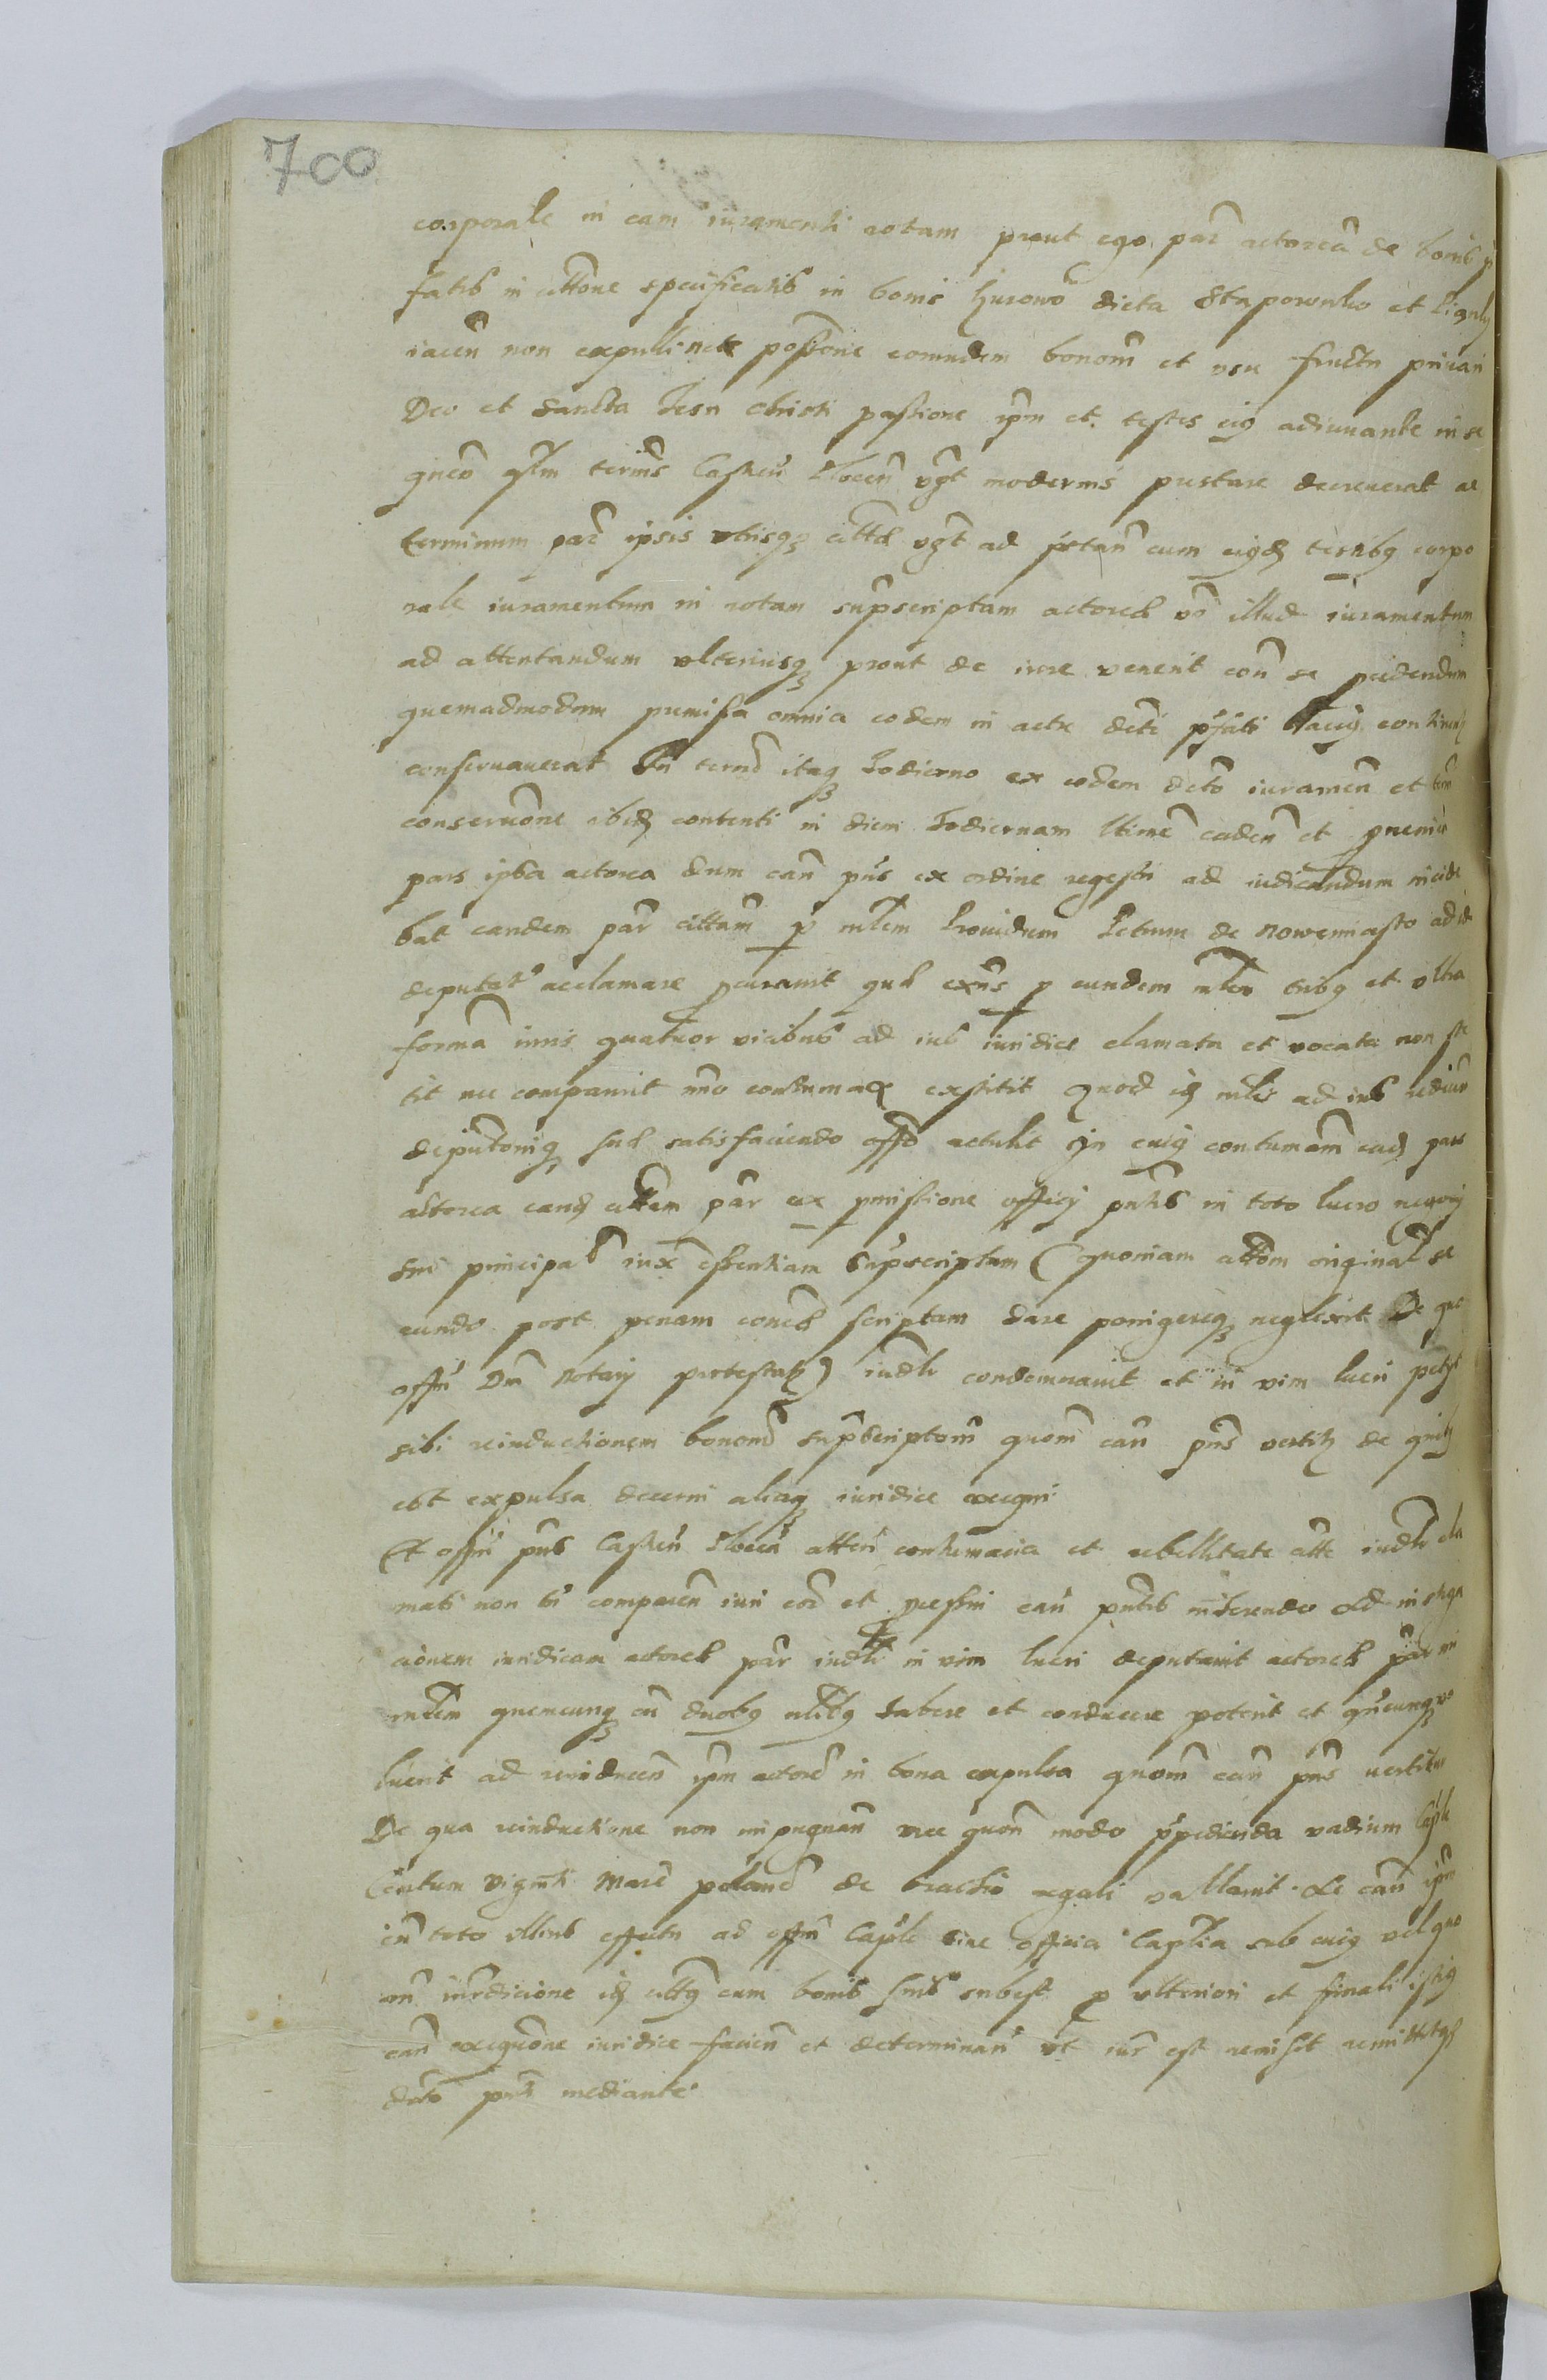 700
corporale in eam iuramenti rotam prout ego par actoream de bonis p
fatis in cittone specificatis in bonis Zurowo dicta Staporowsko et
iacen non expuli nec possione eorundem bonom et usu fructu privavi
Deo et Sancta Jesu Christi passione ipm et testes eig adiuvante in se
quen terminis Castren Plocen vgt modernis prestare decreverat ac
terminum par ipsis utrisq citta vgt ad pstan cum eigd testibg corpo
rale iuramentum in rotam supscriptam actorea vo illud iuramentum
ad attentandum ulteriusq prout de iure venerit con se pcedendum
quemadmodum pmissa omnia eodem in actu dcti pfati
conservaverat In termo itaq hodierno ex eodem dcto iuramen et
conservone ibid contenti in diem hodiernam ltime caden et pveniē
pars ipsa actorea dum can pns ex ordine regestri ad iudicandum incide
bat eandem par cittam p mlem Providum Petrum de Nowemiasto ad id
deputat acclamare pcuravit que exns p eundem mlem tribg et ultra
forma iuris quatuor vicibus ad ius iuridice clamata et vocata non ste
tit nec comparuit imo contumax exstitit Quod id mlis ad ius redium
deputionig sue satisfaciendo offo retulit In cuig contumam ead pars
actorea eand cittam par ex pmissione officij pntis in toto lucro negotij
sui principal iux essentiam supscriptam (quoniam cittom original se
cundo post penam conced scriptam dare porrigereq neglexit De quo
offm Dm Notarij protestatz) iudlr condemnavit et in vim lucri petijt
sibi reinductionem bonorum supscriptom quom can pns vertitz de quibz
est expulsa decerni aliaq iuridice exequi
Et offm pns Castren Plocen atten contumacia et rebellitate citte iudlr cla
mati non tn comparen iuri cor et pcessui can pntis inherendo Ad instiga
tionem iuridicam actorea par iudlr in vim lucri deputavit actorea par mi
mlem quemcunq cu duobg nlibg habere et conducere poterit et quencunq vo
luerit ad reinducen ipm actore in bona expulsa quom can pns vertitur
De qua reinductione non impugnan nec quon modo ppedienda vadium Caple
Centum viginti Marc polonic de brachio regali vallavit Ac can ipm
cu toto illius effectu ad offm Caple sive officia Captia sub cuig vel quo
rum iurisdicione id cittg cum bonis suis subest p ulteriori et finali istig
can exequone iuridice facien et determinan ut iuris est remisit remittitqz
dcto pnti mediante